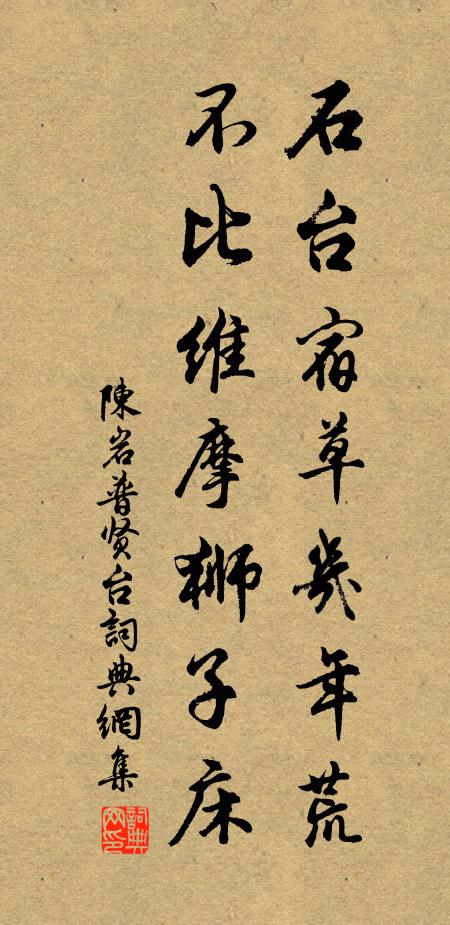 石台宿草幾年荒
不比維摩獅子床
陳岩普贤台詞典網集
詞典网印